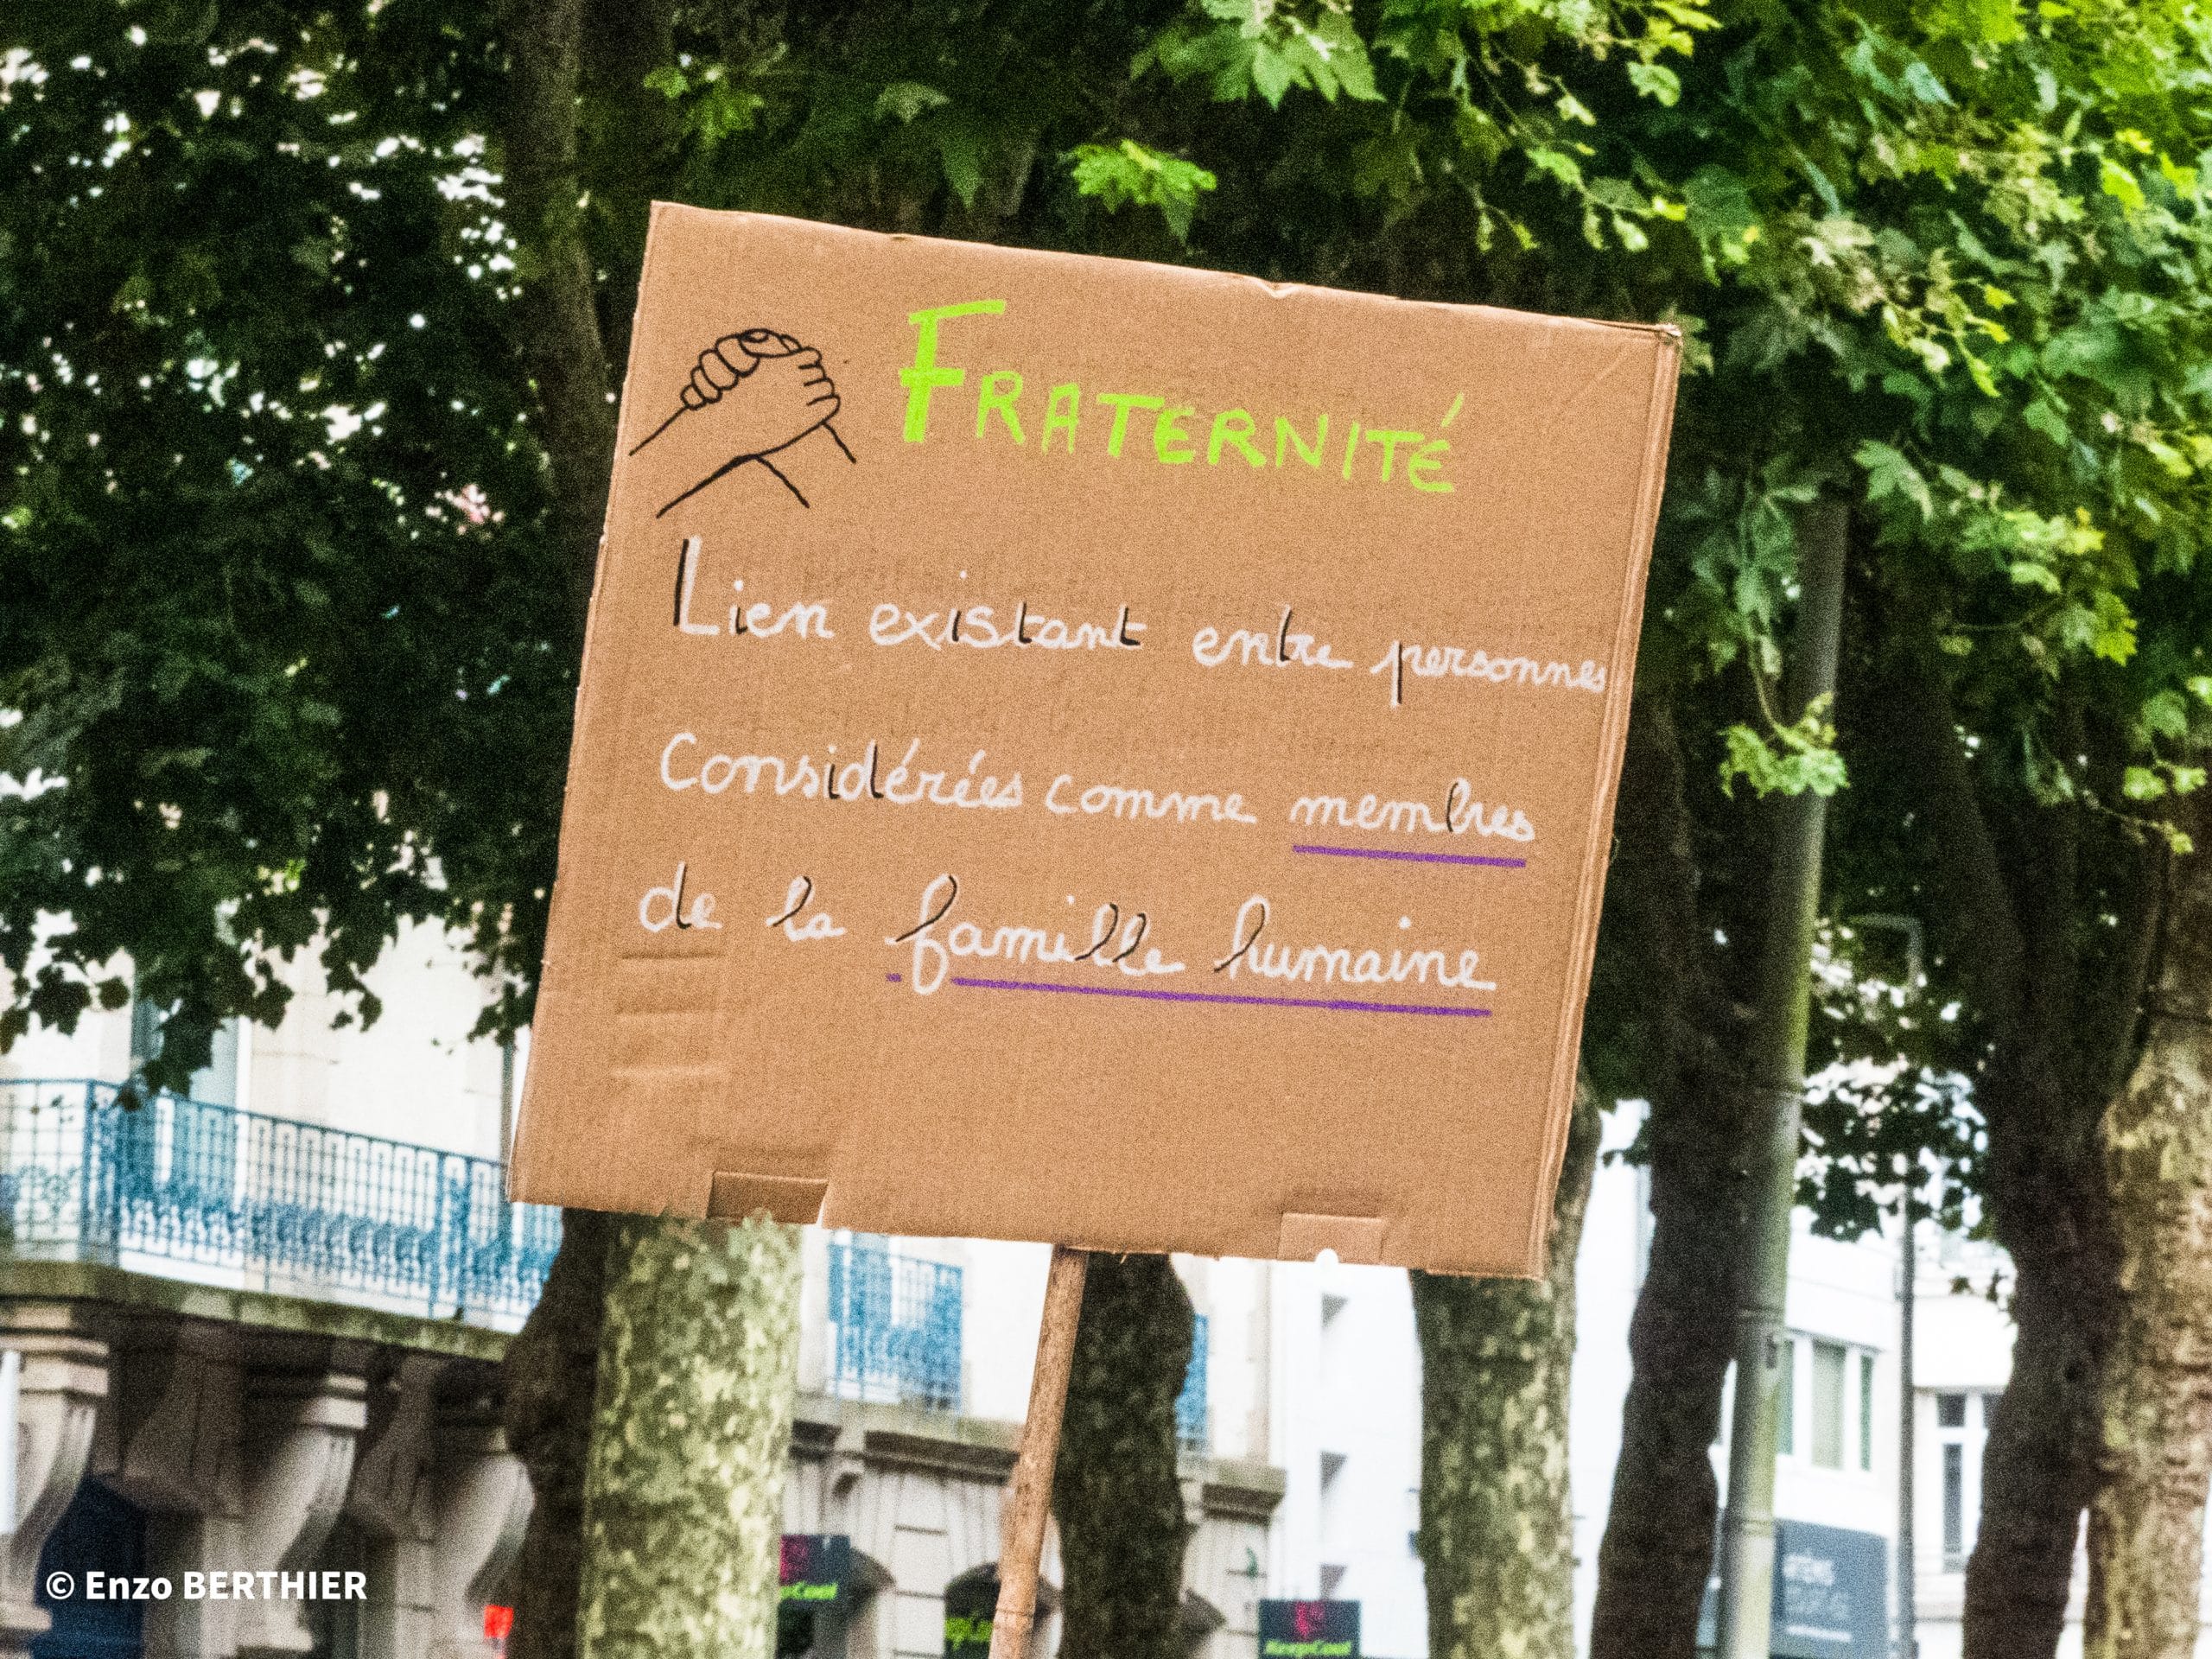 FRATERNITÉ
Lien existant entre personnes
Considérées comme membres
de la famille humaine
© Enzo BERTHIER
KeepCool